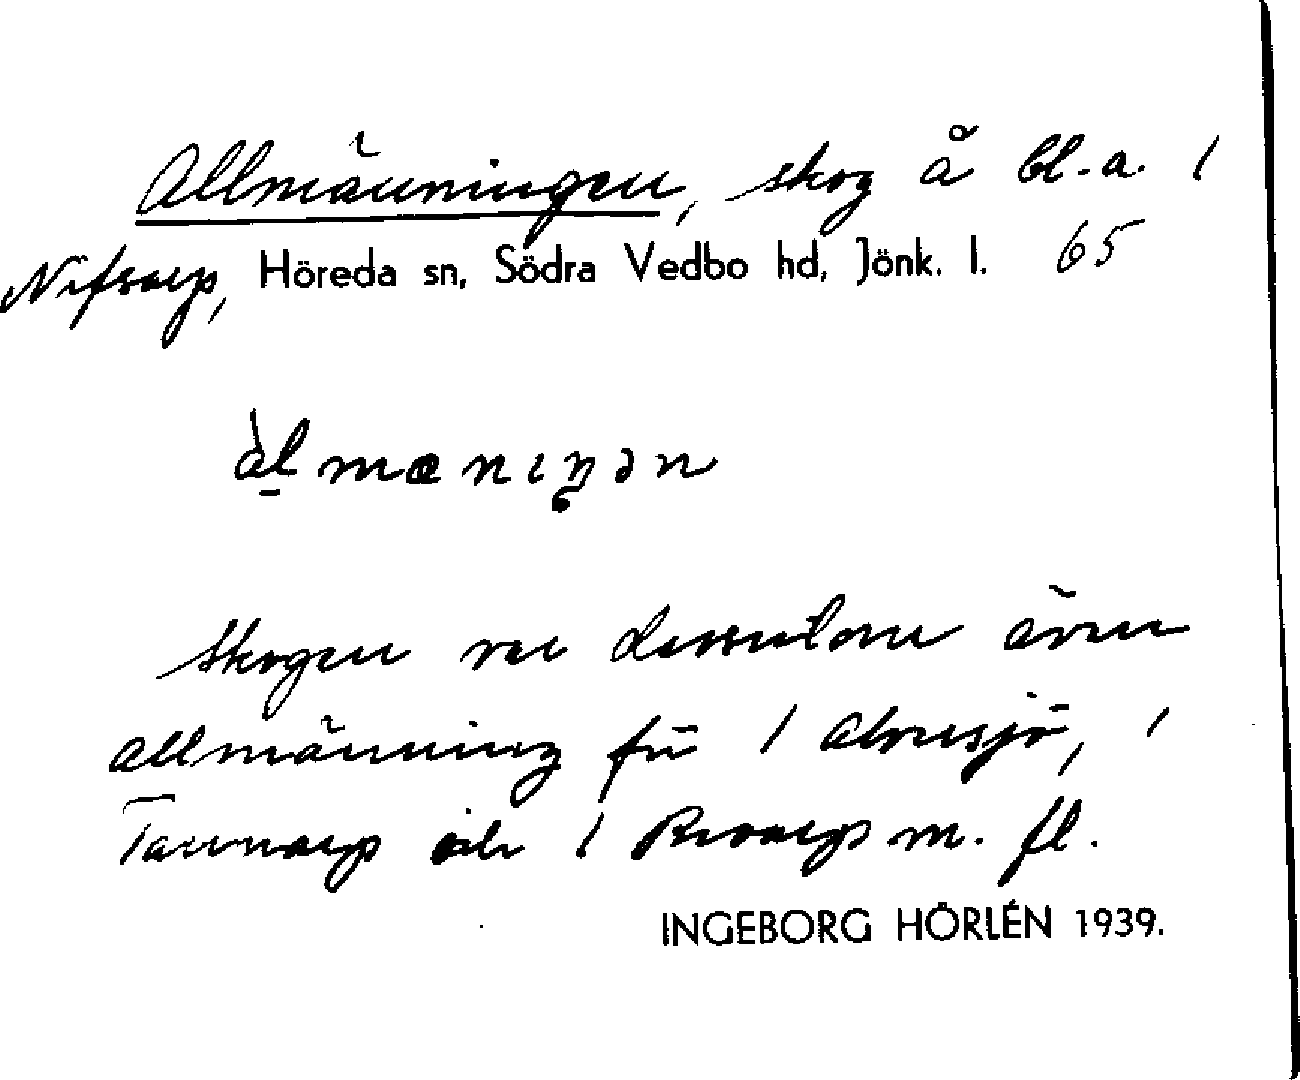 Allmänningen, skog å bl.a. i
Nifsarp, Höreda sn, Södra Vedbo hd, Jönk. l. 65
àlmænıŋən
Skogen var dessutom även
allmänning för i Abrusjö, i
och i Broarp m. fl.
INGEBORG HÖRLÉN 1939.